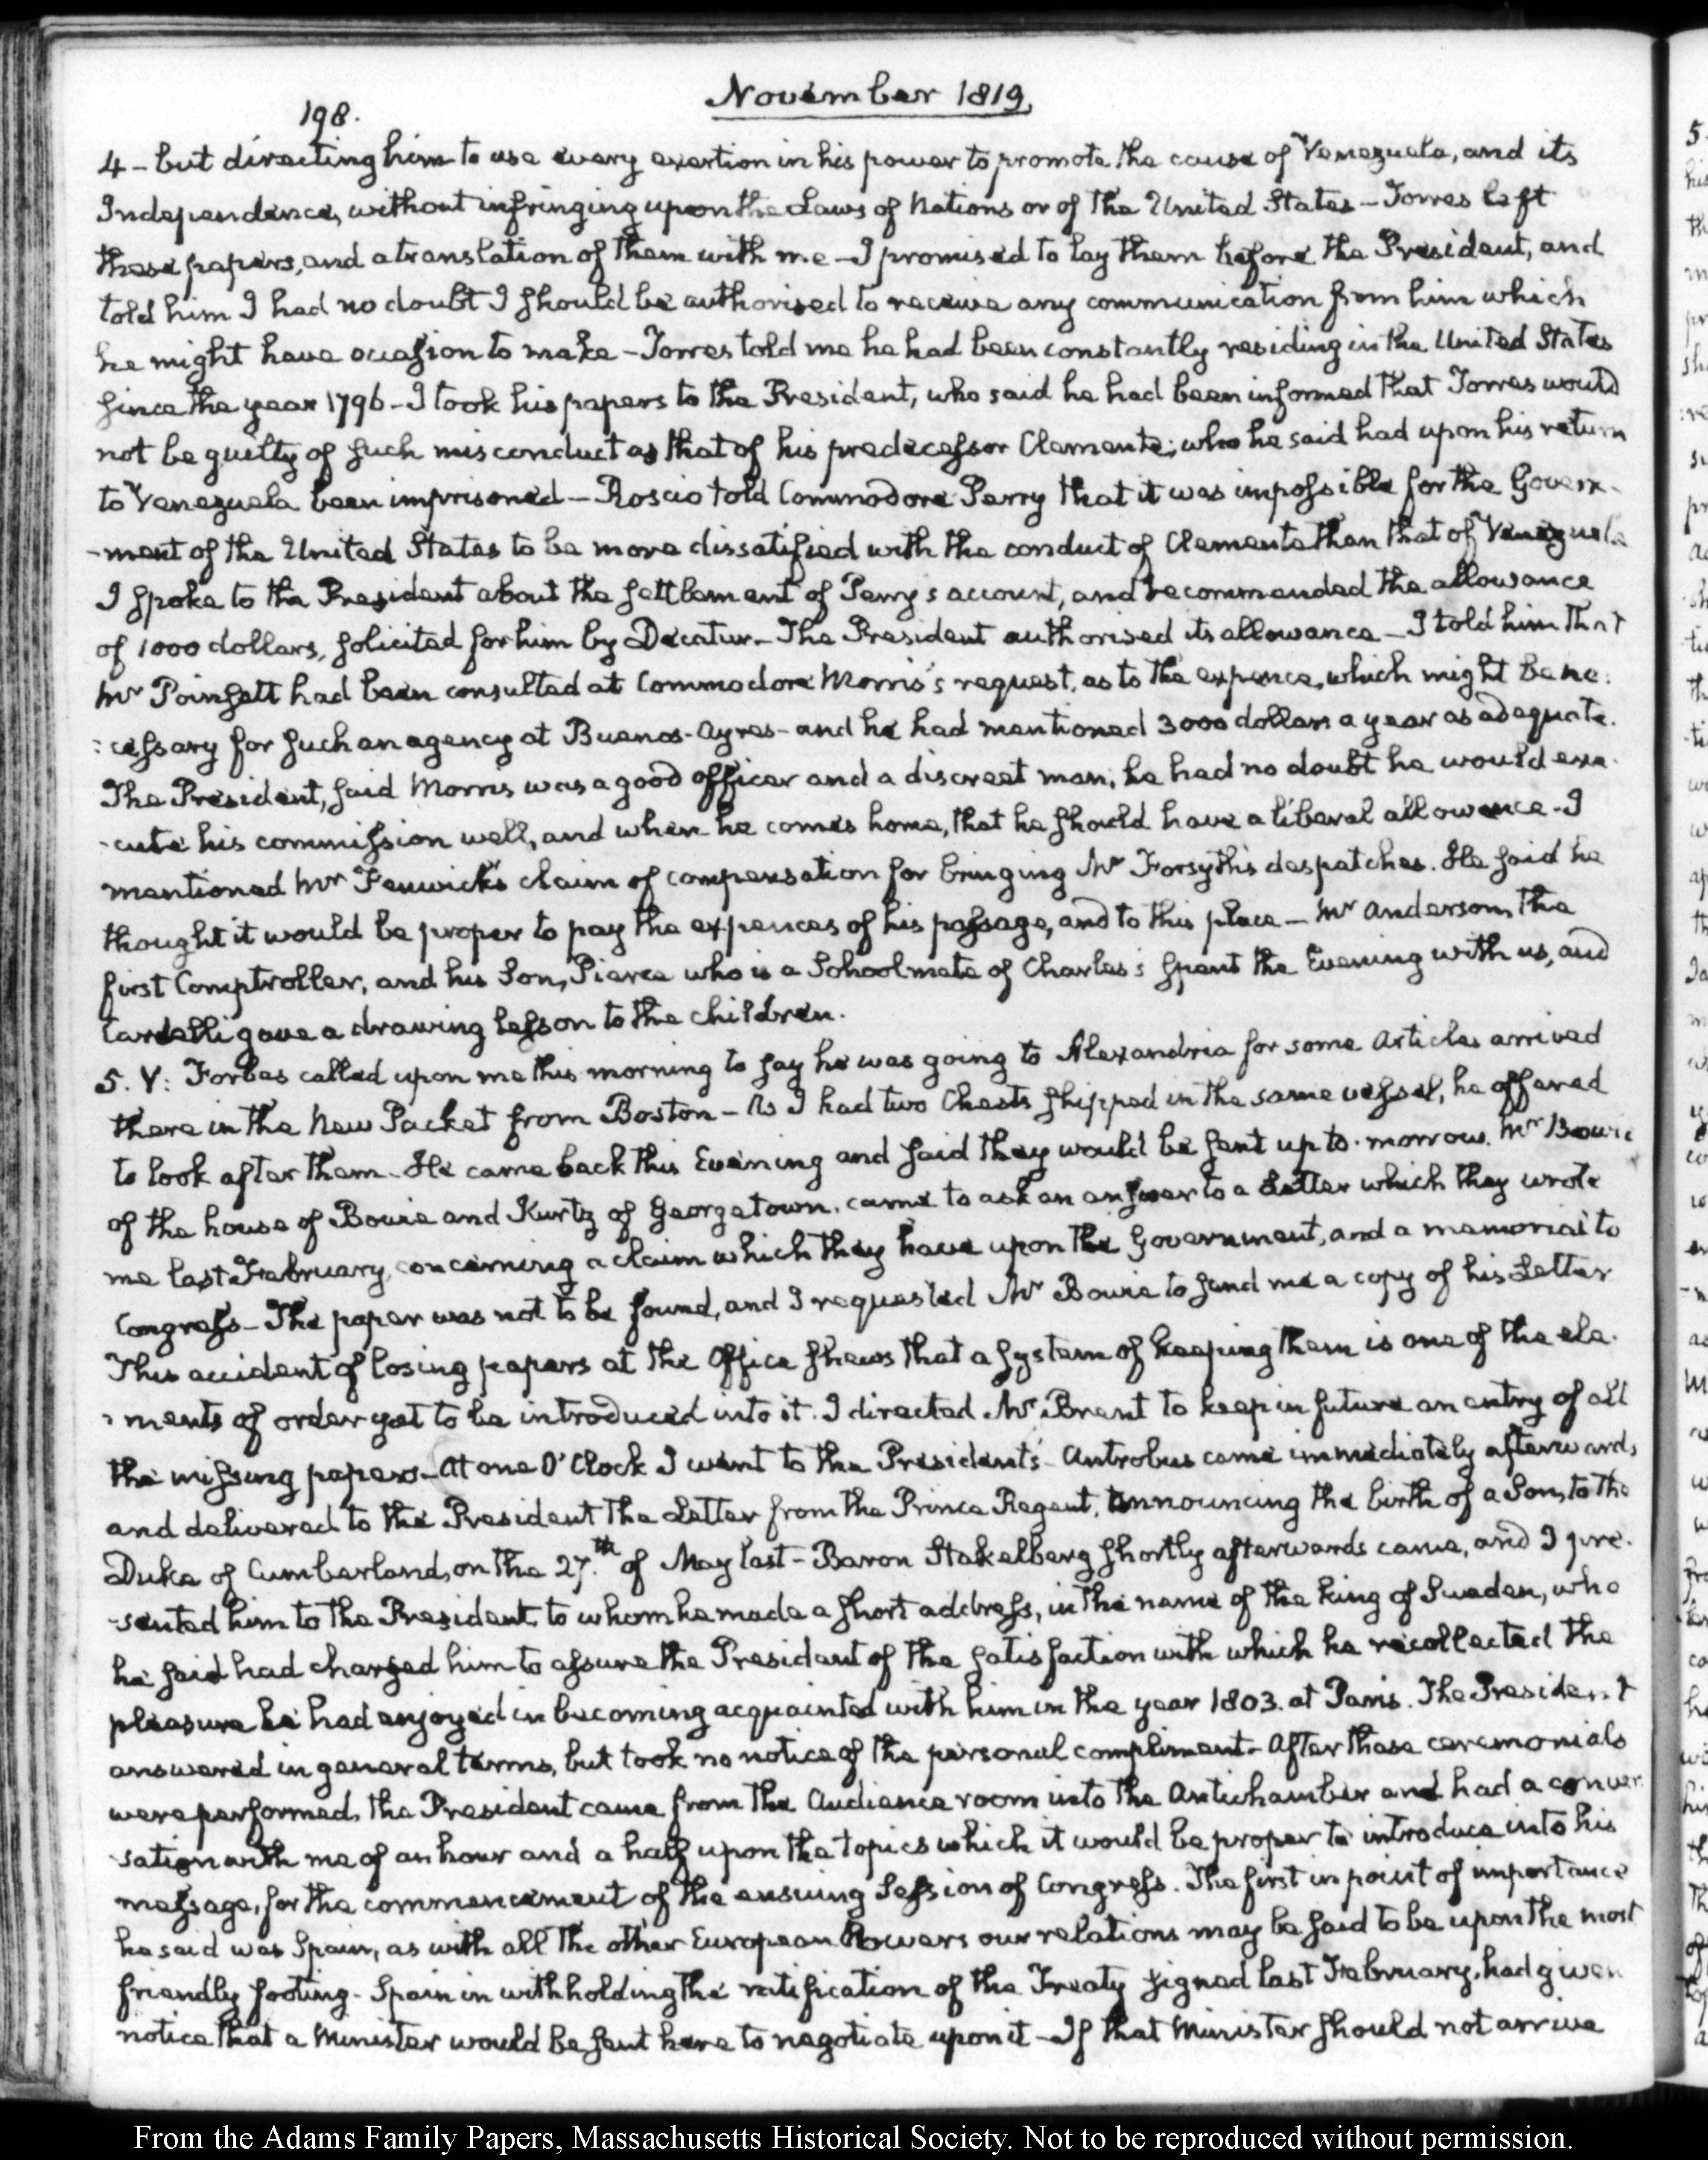 198.
November 1819.
4 - but directing him to use every exertion in his power to promote the cause of Venezuela, and its
Independence, without infringing upon the Laws of Nations or of the United States - Torres left
these papers, and a translation of them with me - I promised to lay them before the President, and
told him I had no doubt I should be authorised to receive any communication from him which
he might have occasion to make - Torres told me he had been constantly residing in the United States
since the year 1796 - I took his papers to the President, who said he had been informed that Torres would
not be guilty of such misconduct as that of his predecessor Clemente; who he said had upon his return
to Venezuela been imprisoned - Roscio told Commodore Perry that it was impossible for the Govern-
-ment of the United States to be more dissatisfied with the conduct of Clemente than that of Venezuela
I spoke to the President about the settlement of Perry's account, and recommended the allowance
of 1000 dollars, solicited for him by Decatur - The President authorised its allowance - I told him that
Mr Poinsett had been consulted at Commodore Morris's request, as to the expence, which might be ne:
:cessary for such an agency at Buenos-Ayres - and he had mentioned 3000 dollars a year as adequate.
The President, said Morris was a good officer and a discreet man; he had no doubt he would exe-
-cute his commission well, and when he comes home, that he should have a liberal allowance - I
mentioned Mr Fenwick's claim of compensation for bringing Mr Forsyth's despatches. He said he
thought it would be proper to pay the expences of his passage, and to this place - Mr Anderson, the
first Comptroller, and his Son, Pierce who is a Schoolmate of Charles's spent the Evening with us, and
Cardelli gave a drawing lesson to the children.
5. V: Forbes called upon me this morning to say he was going to Alexandria for some Articles arrived
there in the New Packet from Boston - As I had two Chests shipped in the same vessel, he offered
to look after them. He came back this Evening and said they would be sent up to-morrow. Mr Bowie
of the house of Bowie and Kurtz of Georgetown, came to ask an answer to a Letter which they wrote
me last February, concerning a claim which they have upon the Government, and a memorial to
Congress - The paper was not to be found, and I requested Mr Bowie to send me a copy of his Letter
This accident of losing papers at the Office shews that a system of keeping them is one of the ele-
:ments of order yet to be introduced into it. I directed Mr Brent to keep in future an entry of all
the missing papers - At one O'Clock I went to the President's - Antrobus came immediately afterwards
and delivered to the President the Letter from the Prince Regent, announcing the birth of a Son, to the
Duke of Cumberland, on the 27.th of May last - Baron Stakelberg shortly afterwards came, and I pre-
-sented him to the President, to whom he made a short address, in the name of the king of Sweden, who
he said had charged him to assure the President of the satisfaction with which he recollected the
pleasure he had enjoyed in becoming acquainted with him in the year 1803. at Paris. The President
answered in general terms, but took no notice of the personal compliment - After these ceremonials
were performed, the President came from the Audience room into the Antichamber and had a conver-
-sation with me of an hour and a half upon the topics which it would be proper to introduce into his
message, for the commencement of the ensuing Session of Congress. The first in point of importance
he said was Spain, as with all the other European Powers our relations may be said to be upon the most
friendly footing - Spain in withholding the ratification of the Treaty signed last February, had given
notice that a Minister would be sent here to negotiate upon it - If that Minister should not arrive
From the Adams Family Papers, Massachusetts Historical Society. Not to be reproduced without permission.